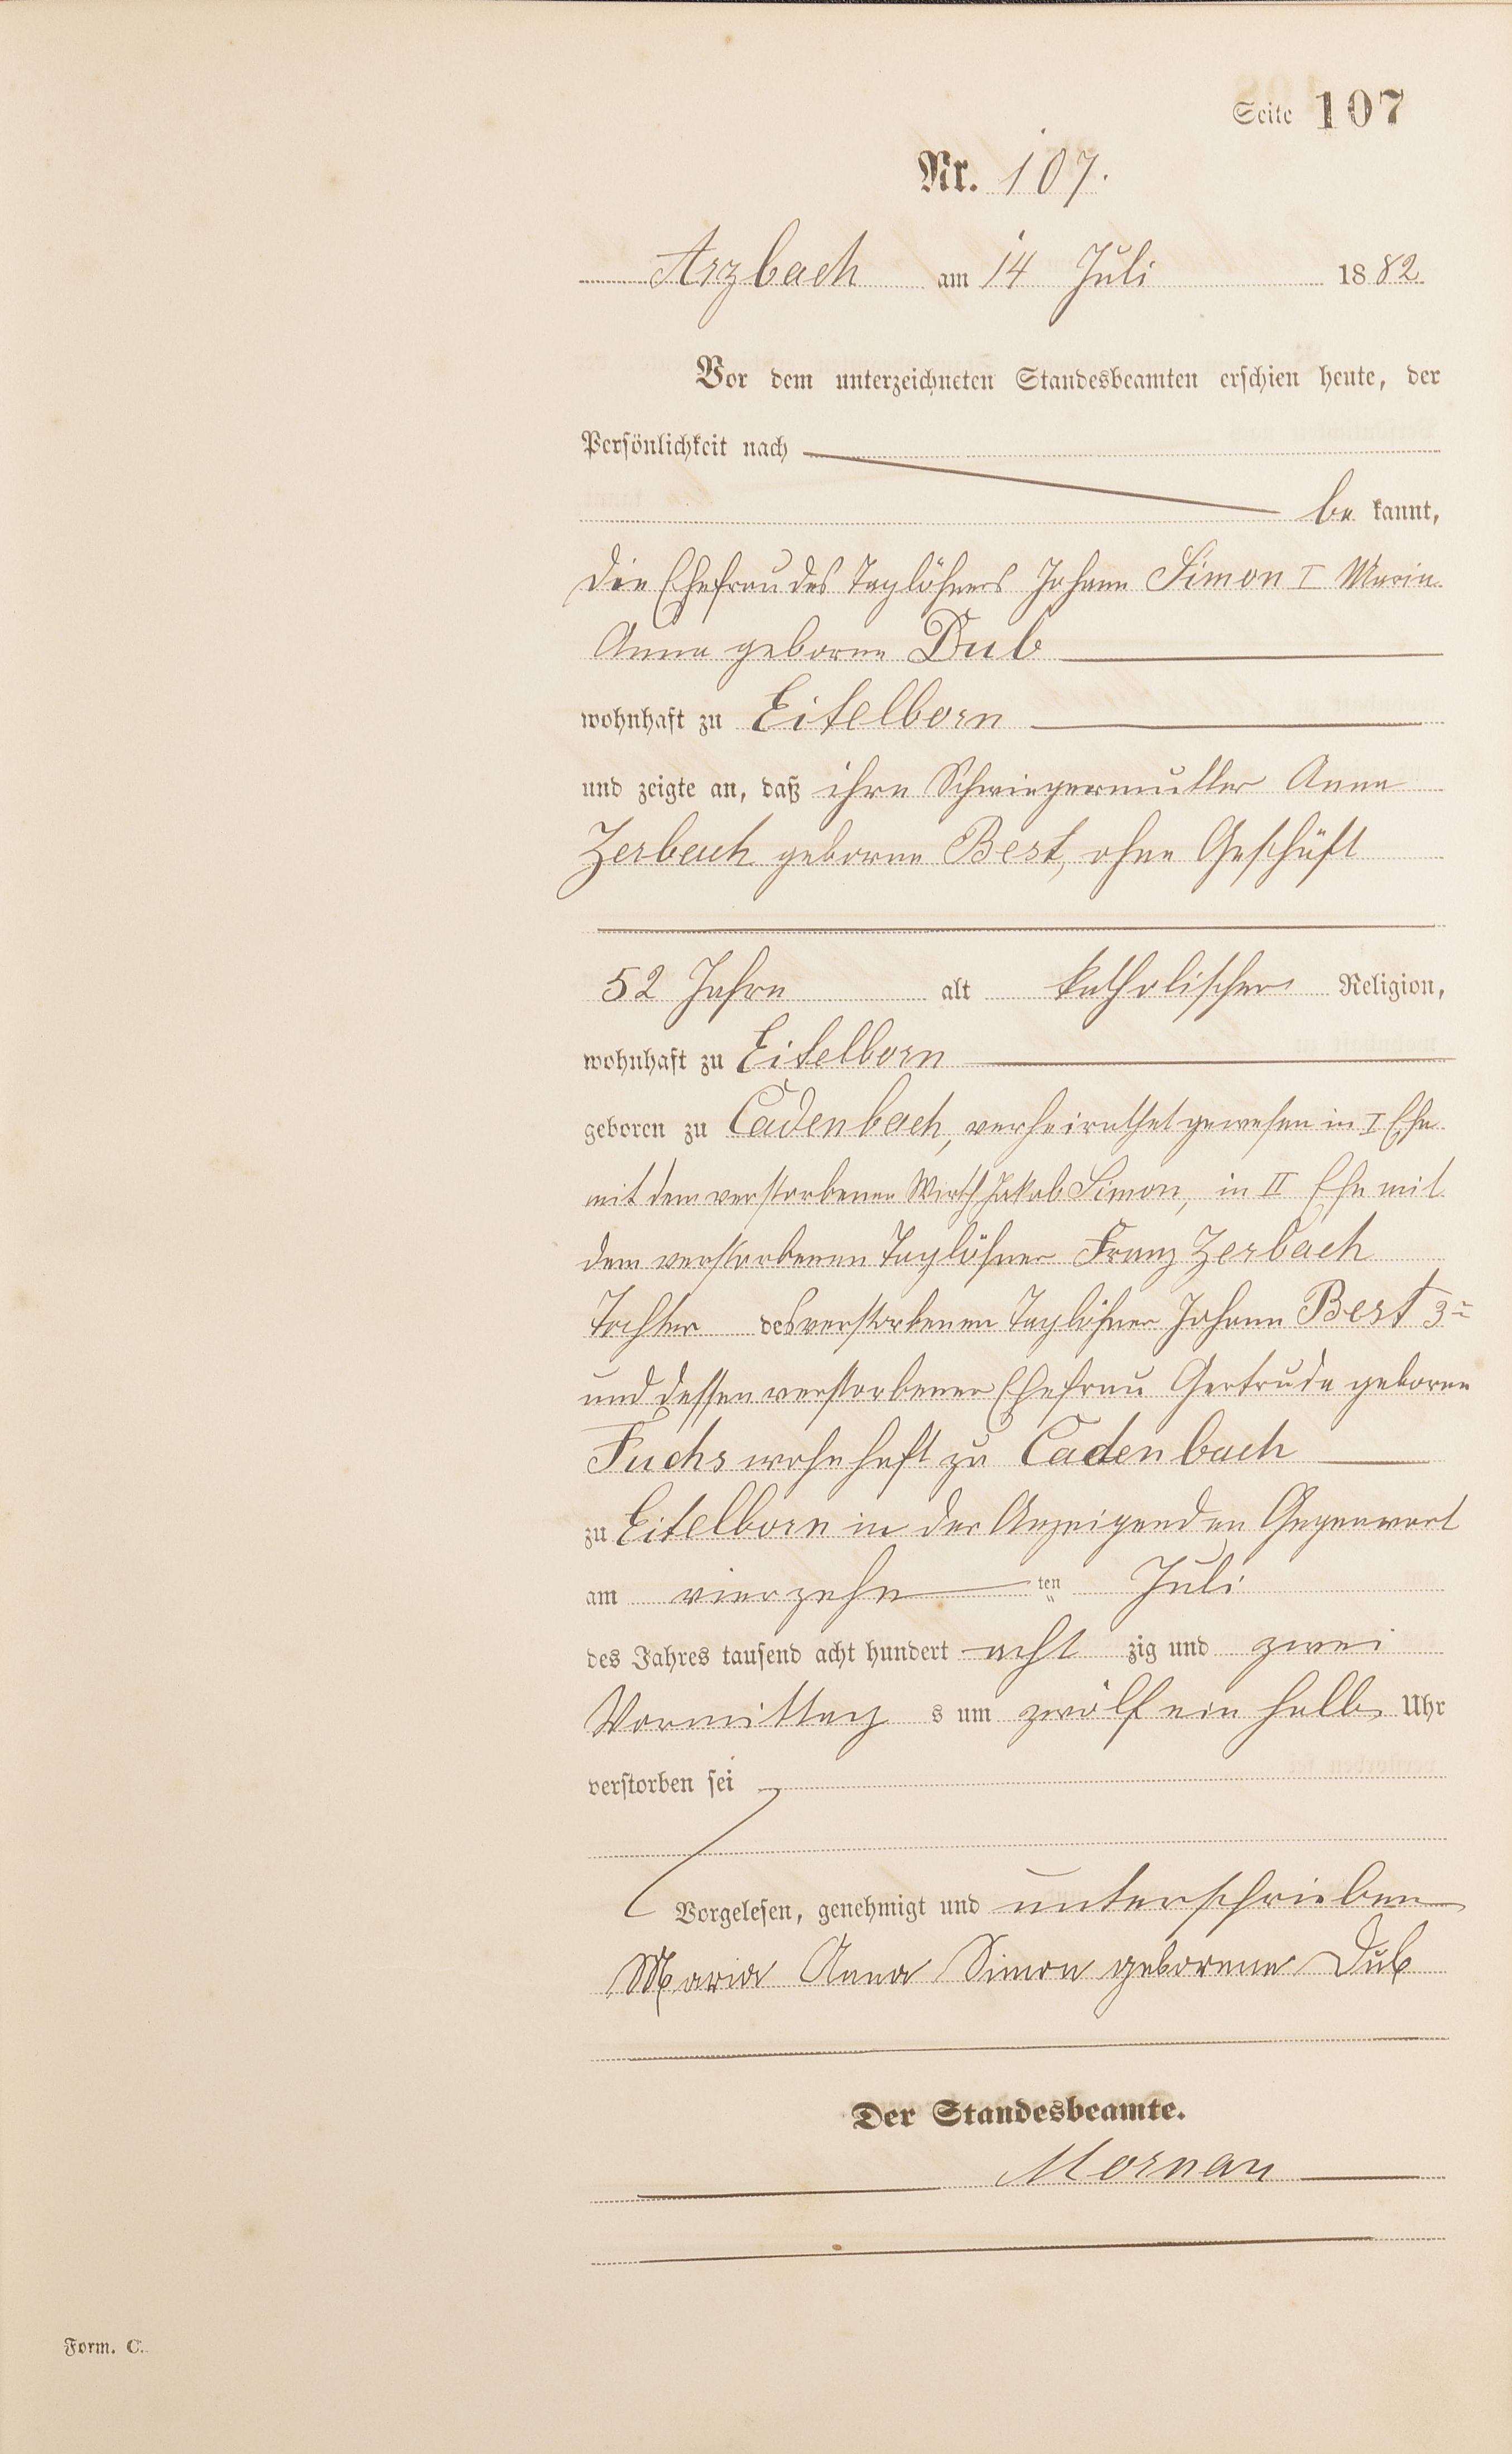 Seite 107
Nr. 107.
Arzbach am 14 Juli 1882.
Vor dem unterzeichneten Standesbeamten erschien heute, der
Persönlichkeit nach
be kannt,
die Ehefrau des Taglöhners Johann Simon I Maria
Anna geborne Dub
wohnhaft zu Eitelborn
und zeigte an, daß ihre Schwiegermutter Anna
Zerbach geborne Best, ohne Geschäft
52 Jahre alt katholischer Religion,
wohnhaft zu Eitelborn
geboren zu Cadenbach, verheirathet gewesen in I Ehe
mit dem verstorbenen Wirth Jakob Simon, in II Ehe mit
dem verstorbenen Taglöhner Franz Zerbach
Tochter des verstorbenen Taglöhner Johann Best 3r
und dessen verstorbener Ehefrau Gertrude geborne
Fuchs wohnhaft zu Cadenbach
zu Eitelborn in der Anzeigenden Gegenwart
am vierzehn ten Juli
des Jahres tausend acht hundert acht zig und zwei
Vormittag s um zwölf ein halb Uhr
verstorben sei
Vorgelesen, genehmigt und unterschrieben
Maria Anna Simon geborene Dub
Der Standesbeamte.
Mornau
Form. C.